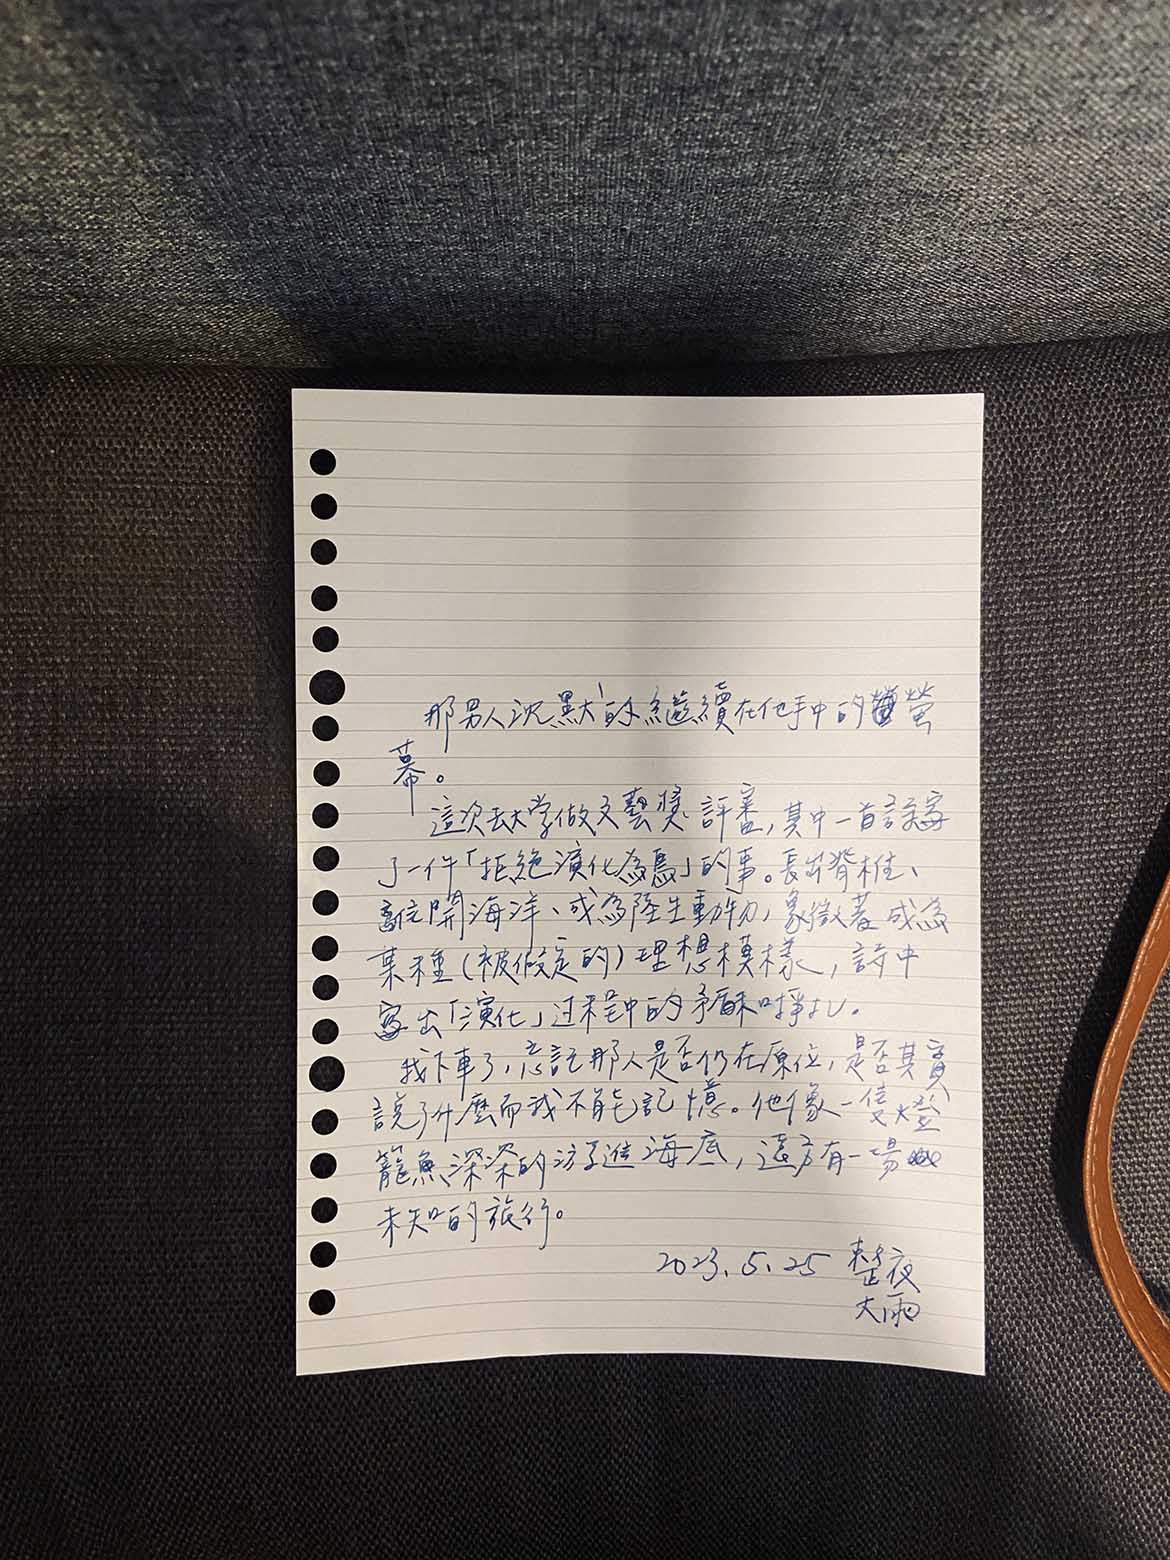 那男人沉默的繼續在他手中的螢
幕。
這次去大学做文藝獎評審,其中一首詩寫
了一件「拒絕演化為鳥」的事。長出脊椎、
離開海洋、成為陸生動物,象徵著成為
某種(被假定的)理想模樣,詩中
寫出「演化」过程中的矛盾和掙扎。
我下車了,忘記那人是否仍在原位,是否其實
說了什麼而我不能記憶。他像一隻燈
籠魚深深的游進海底,遠方有一場
未知的旅行。
2023.5.25 整夜
大雨